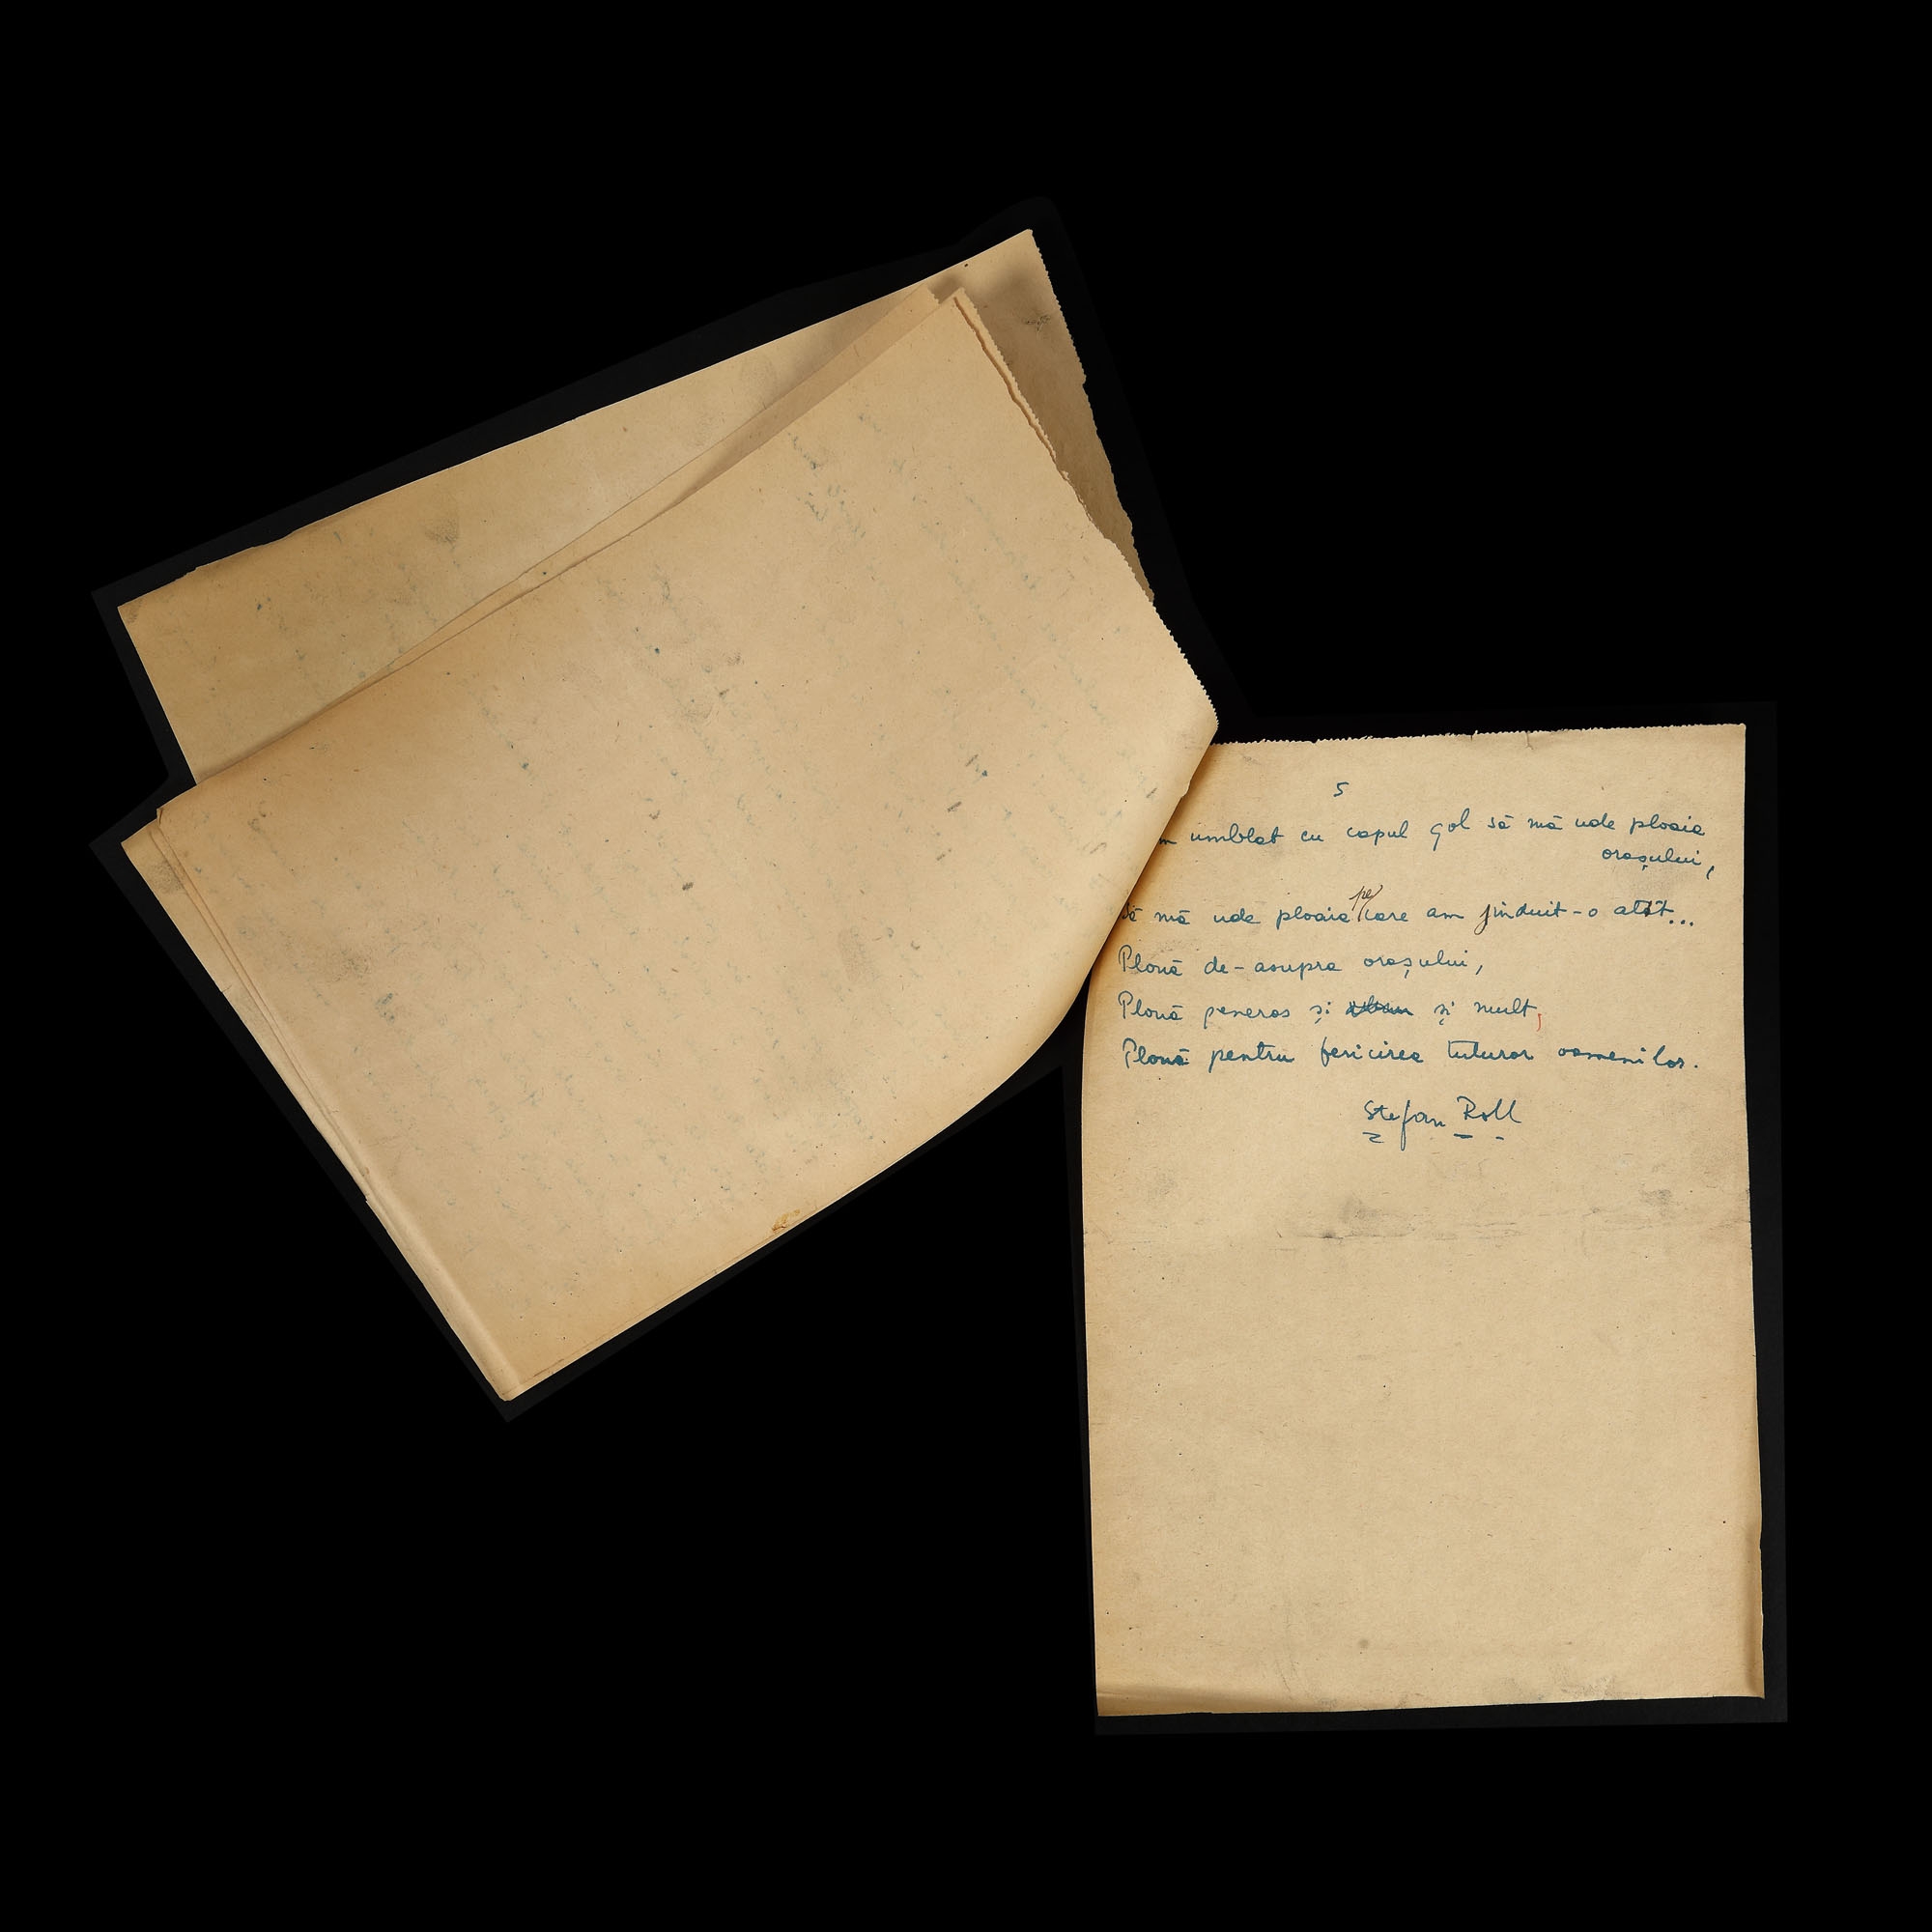 5
umblat cu capul gol să mă ude ploaia
orașului,
Să mă ude ploaia pe care am jinduit-o atît...
Plouă de-asupra orașului,
Plouă generos și și mult,
Plouă pentru fericirea tuturor oamenilor.
Stefan Roll